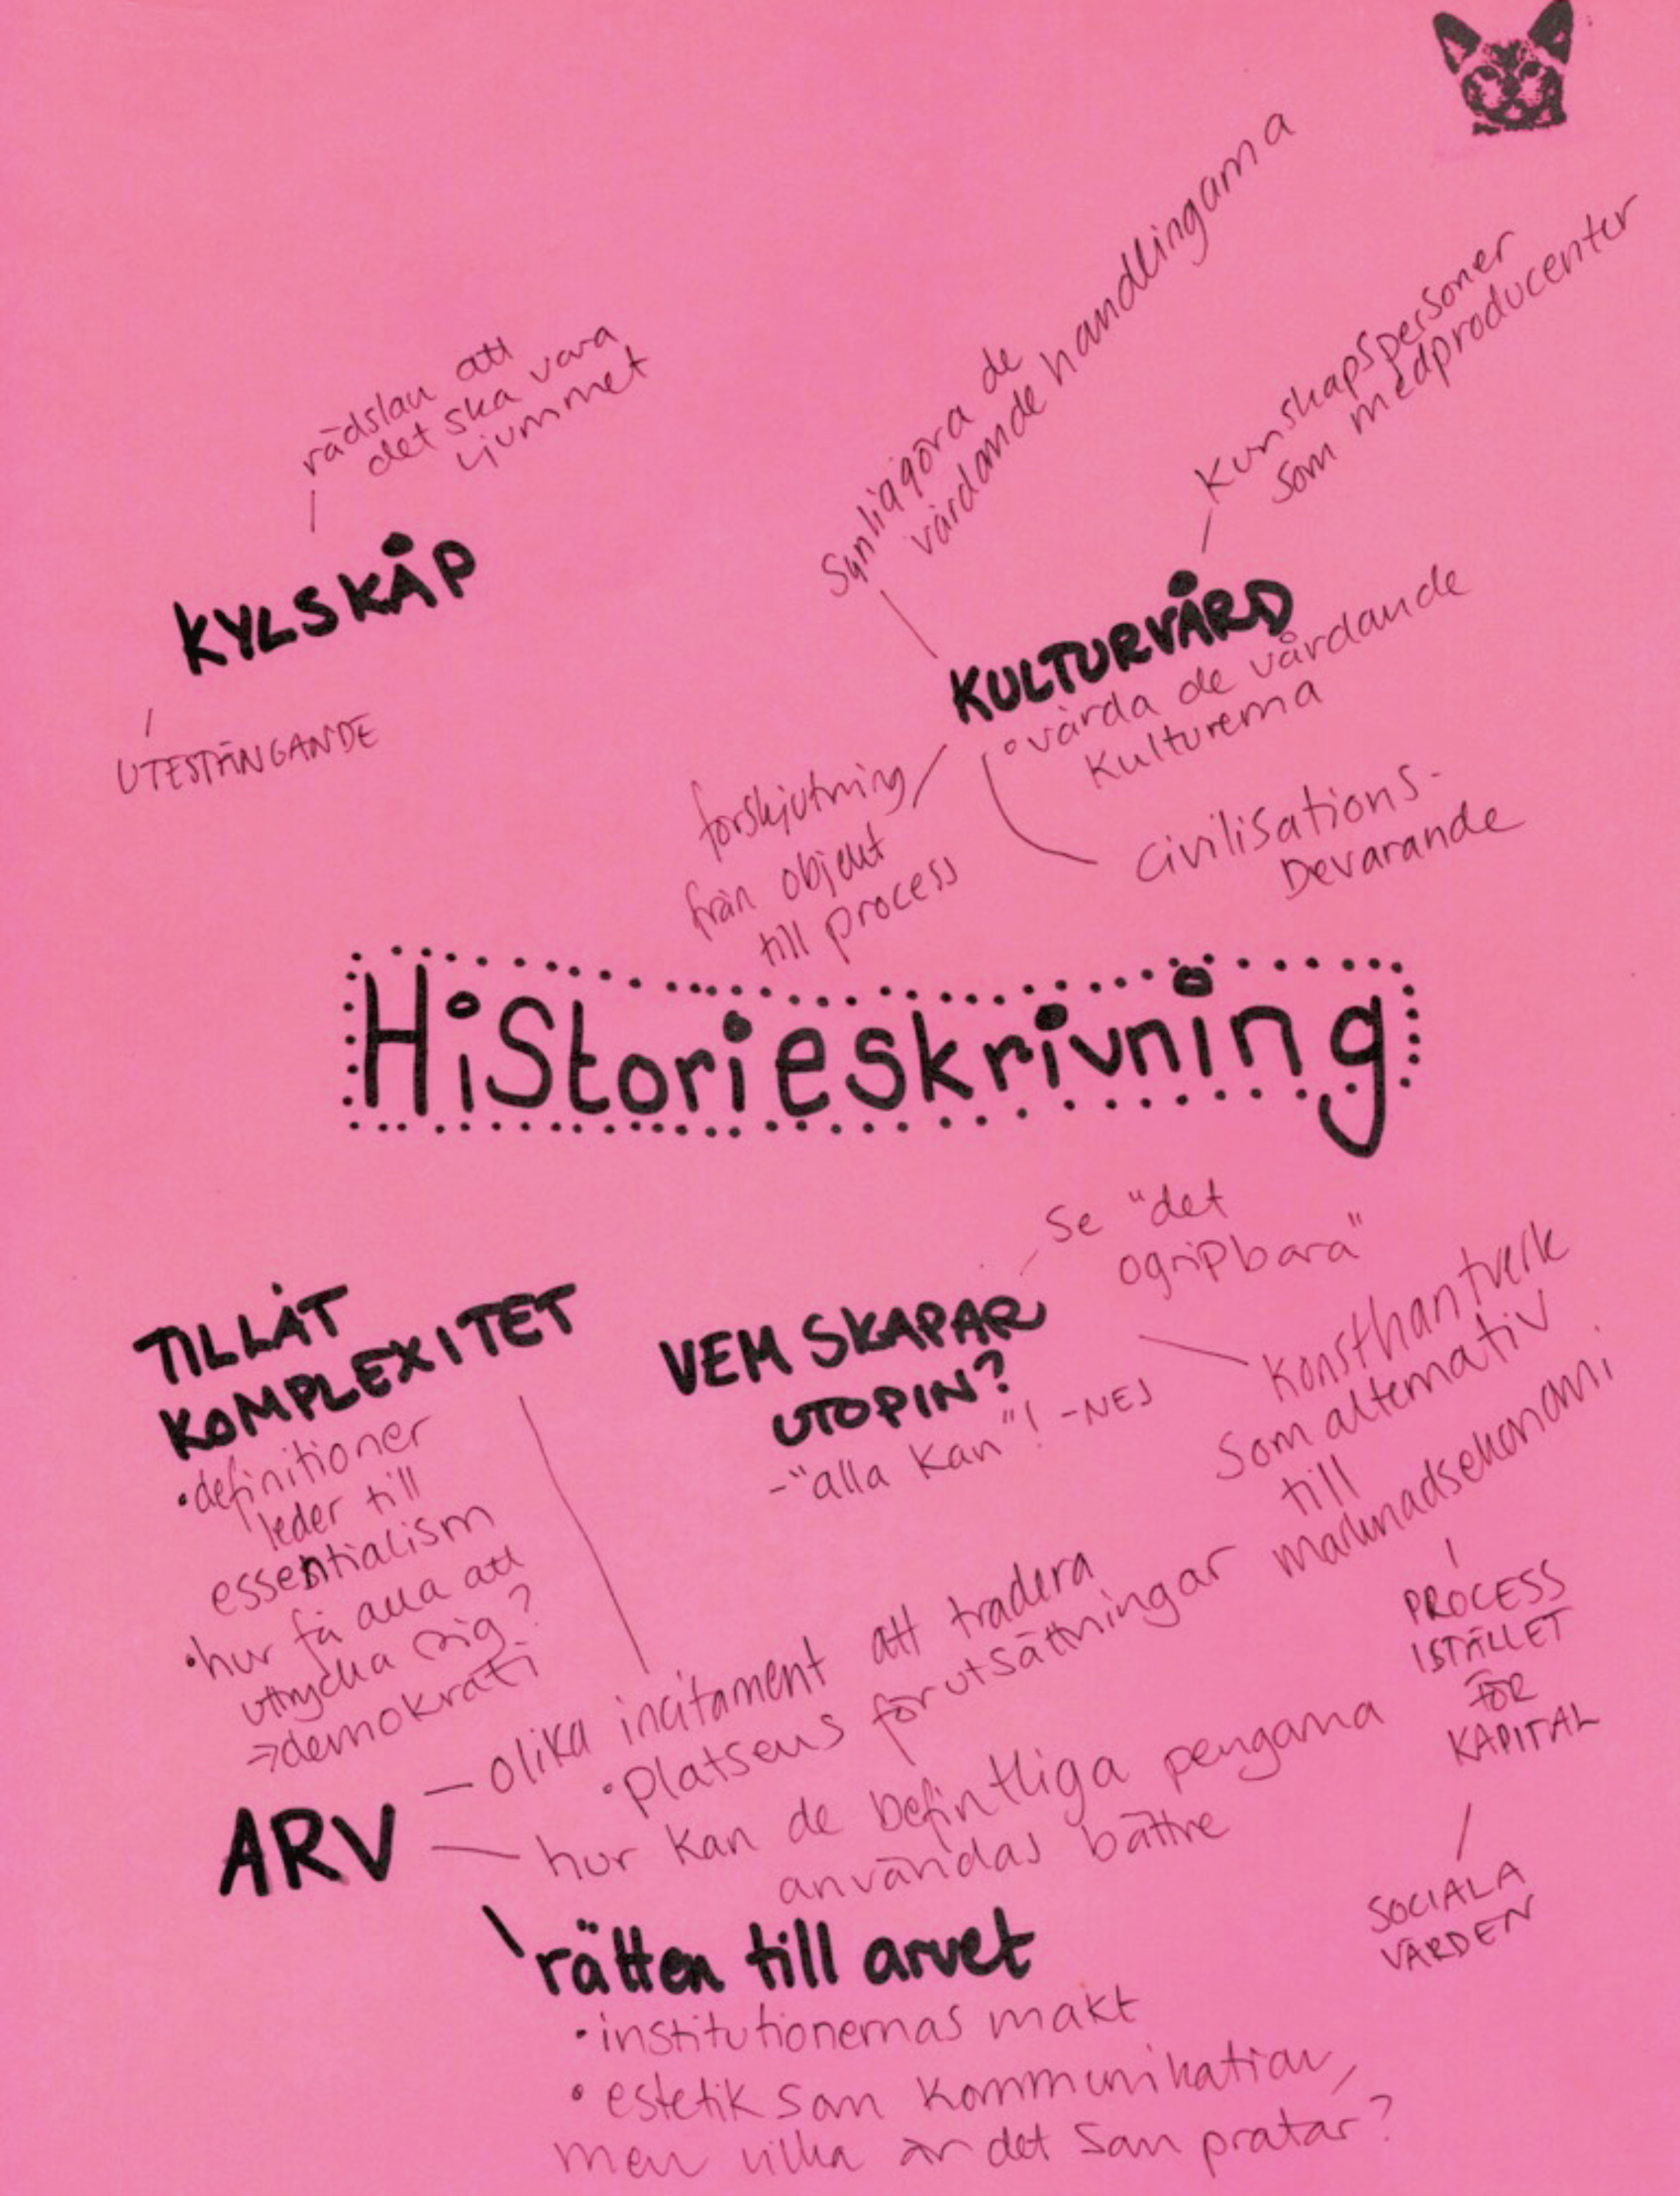 rädslan att
det ska vara
ljummet
KYLSKÅP
UTESTÄNGANDE
Synliggöra de
vårdande handlingarna
Kunskapspersoner
som medproducenter
KULTURVÅRD
vårda de vårdande
Kulturerna
Civilisations-
Devarande
förskjutning
från objekt
till process
HiStorieskrivning
TILLÅT
KOMPLEXITET
• definitioner
leder till
essentialism
• hur få alla att
uttrycka sig?
→ demokrati
VEM SKAPAR
UTOPIN?
- "alla kan"! - NEJ
Se "det
ogripbara"
Konsthantverk
Som alternativ
till
marknadsekonomi
PROCESS
ISTÄLLET
FÖR
KAPITAL
SOCIALA
VÄRDEN
ARV
olika incitament att tradera
• Platsens förutsättningar
hur kan de befintliga pengarna
användas bättre
rätten till arvet
• institutionernas makt
• estetik som kommunikation,
men vilka är det som pratar?